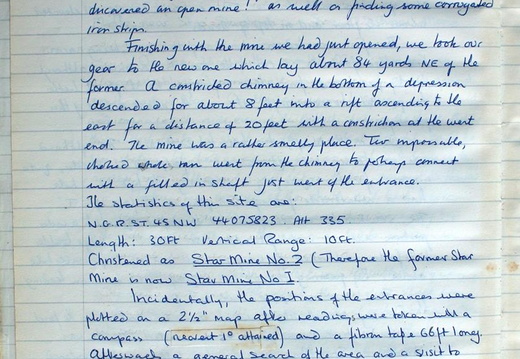 discovered an open mine! as well as finding some corrugated
iron strips.
Finishing with the mine we had just opened, we took our
gear to the new one which lay about 84 yards NE of the
former. A constricted chimney in the bottom of a depression
descended for about 8 feet into a rift ascending to the
east for a distance of 20 feet with a constriction at the west
end. The mine was a rather smelly place. Two impossible,
choked ran west from the chimney to perhaps connect
with a filled in shaft just west of the entrance.
The statistics of this site are:
N.G.R. ST. 45 NW 44075823. Alt 335.
Length: 30Ft Vertical Range: 10Ft.
Christened as Star Mine No. 2 (Therefore the former Star
Mine is now Star Mine No I.
Incidentally, the positions of the entrances were
plotted on a 2½" map after readings were taken with a
compass (nearest 1° attained) and a fibron tape 66ft long.
Afterwards a general search of the area and a visit to